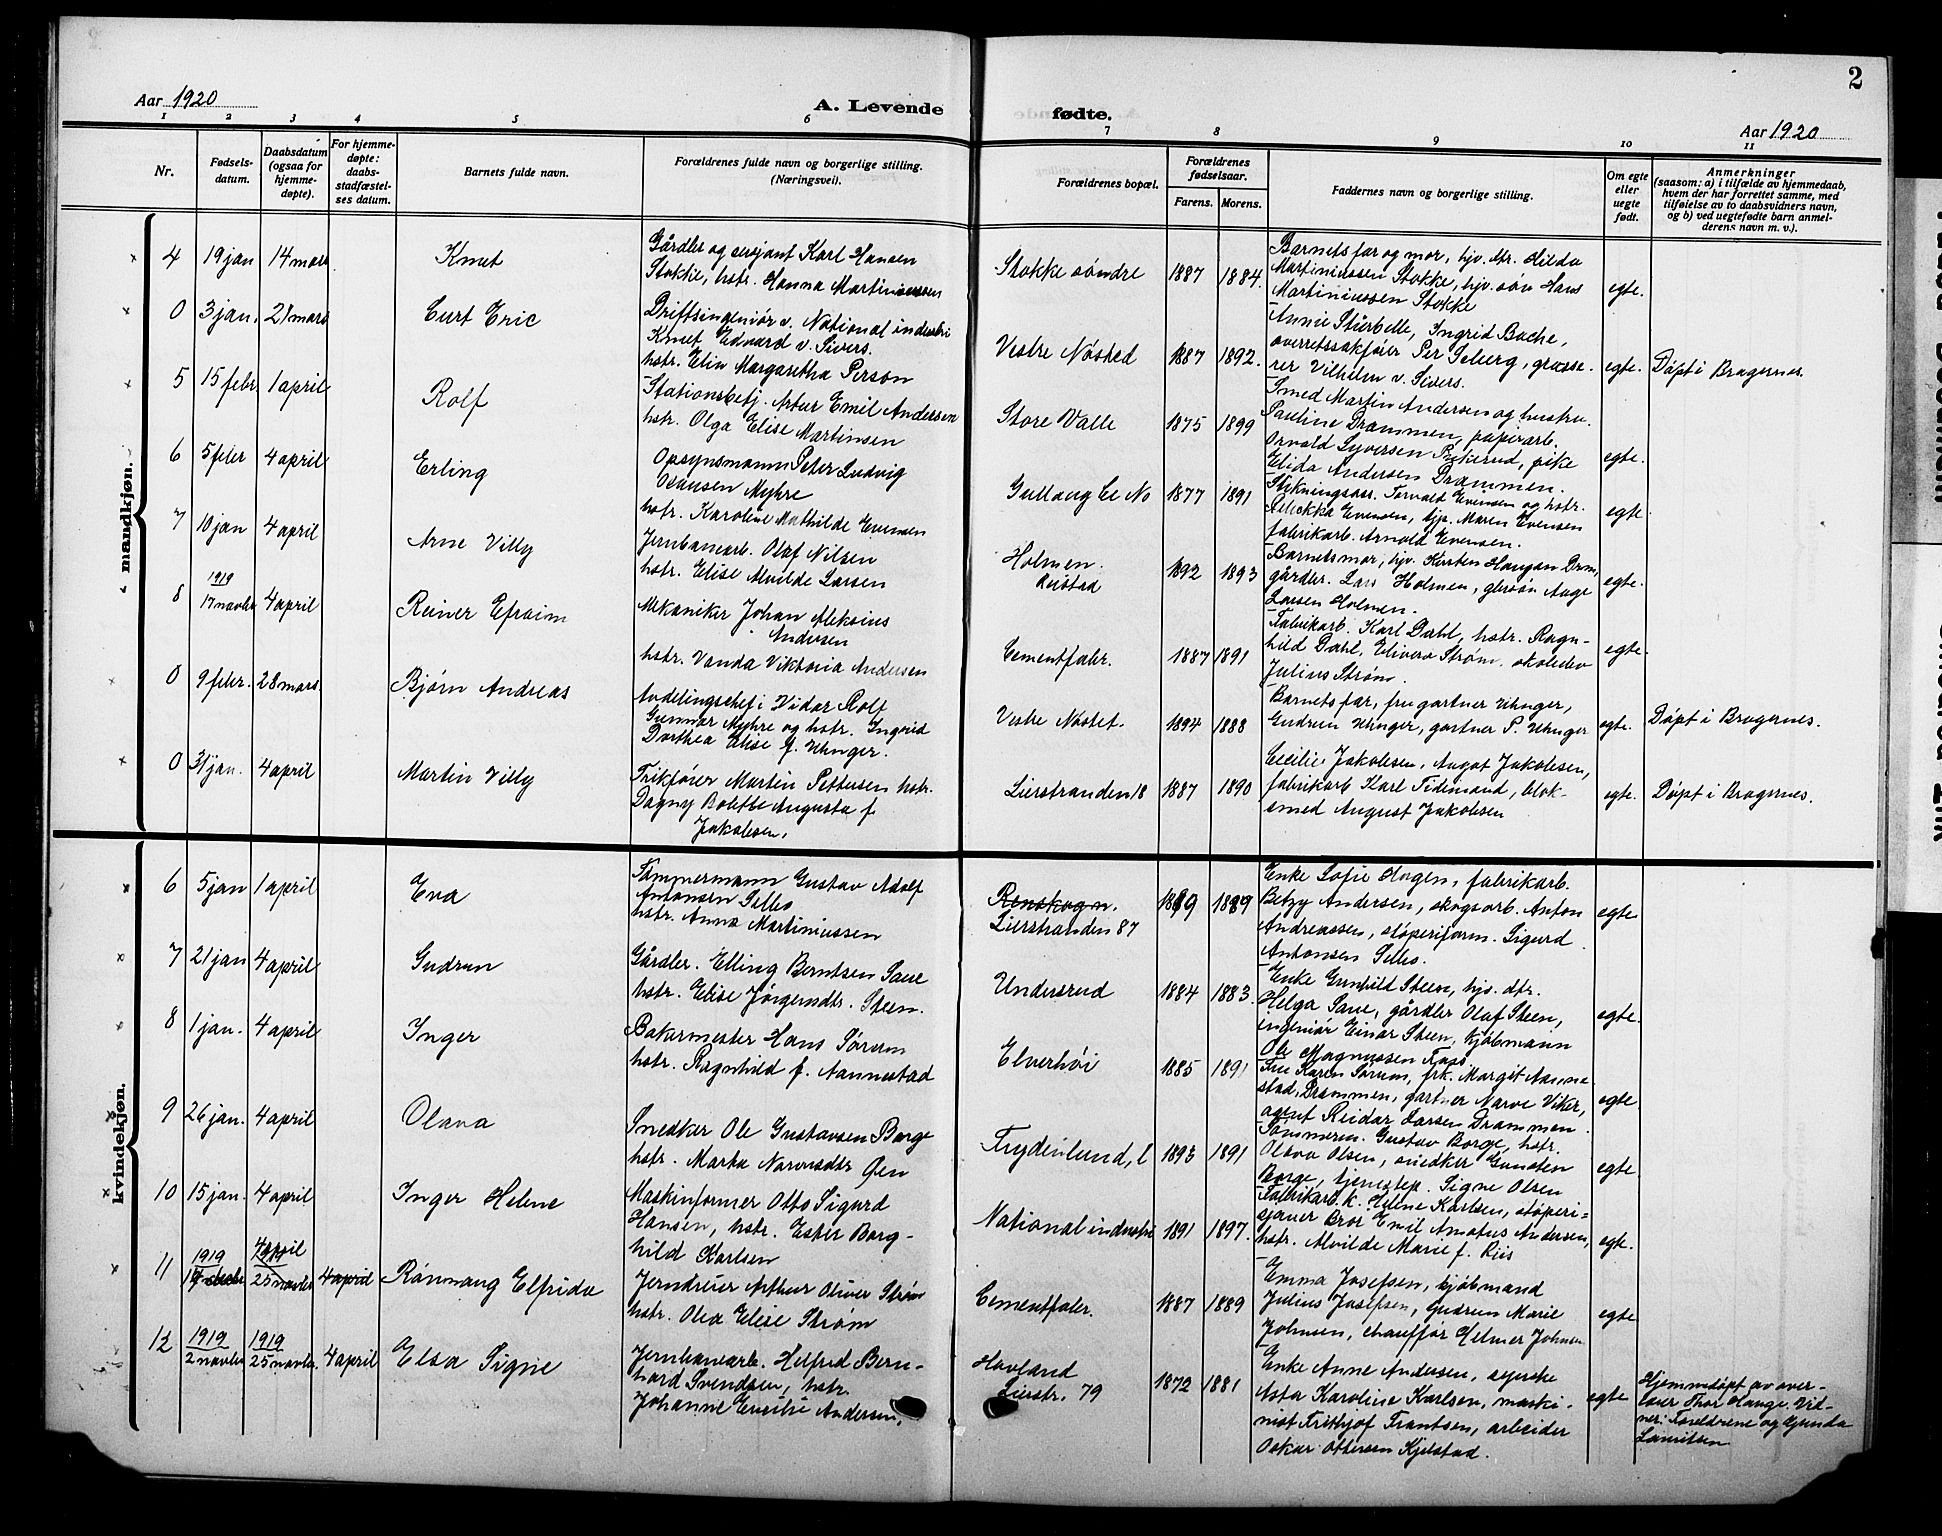 2
Aar 1920
A. Levende
fødte.
Aar 1920
1 2 3 4 5 6 7 8 9 10 11
Nr.
Fødsels-
datum.
Daabsdatum
(ogsaa for
hjemme-
døpte).
For hjemme-
døpte:
daabs-
stadfæstel-
ses datum.
Barnets fulde navn.
Forældrenes fulde navn og borgerlige stilling.
(Næringsvei).
Forældrenes bopæl.
Forældrenes
fødselsaar.
Farens. Morens.
Faddernes navn og borgerlige stilling.
Om egte
eller
uegte
født.
Anmerkninger
(saasom: a) i tilfælde av hjemmedaab,
hvem der har forrettet samme, med
tilføielse av to daabsvidners navn,
og b) ved uegtefødte barn anmel-
derens navn m. v.).
mandkjøn.
4 19 jan 14 mars Knut
Gårdbr og sersjant Karl Hansen
Stokke, hstr. Hanna Martinussen
Stokke söndre 1887 1884.
Barnets far og mor, hjv. dtr. Hilda
Martiniussen Stokke, hjv. sön Hans
Martiniussen Stokke
egte.
0 3 jan. 21 mars Curt Eric
Driftsingeniör v. National industri
Knut Edvard v. Sivers.
hstr. Elin Margaretha Person
Vestre Nösted 1887 1892.
Annie Ingrid Bache,
overretssakfører Per Seberg, grosse-
rer Vilhelm v. Sivers.
egte. Döpt i Bragernes.
5 15 febr 1 april Rolf
Stationsbetj. Artur Emil Andersen
hstr. Olga Elise Martinsen
Store Valle 1875 1899
Smed Martin Andersen og hustru
Pauline Drammen, papirarb.
Arvald Syversen pike
Elida Andersen Drammen.
egte.
6 5 febr 4 april Erling
Opsynsmann Peter Ludvig
Olausen Myhre
hstr. Karoline Mathilde Evensen
Gullaug Ce No 1877 1891
Torvald Evensen og hstr.
Evensen, hjp. Maren Evensen
fabrikarb. Arnold Evensen.
egte
7 10 jan 4 april Arne Villy
Jernbanearb. Olaf Nilsen
hstr. Elise Alvilde Larsen
Holmen.
Reistad
1892 1893
Barnets mor, hjv. Kirsten Haugan Drm,
gårdbr. Lars Holmen, gbrsön Aage
Larsen Holmen.
egte.
8 1919
17 novbr 4 april Reiner Efraim
Mekaniker Johan Aleksius
Andersen
hstr. Vanda Viktoria Andersen
Cementfabr. 1887 1891
Fabrikarb. Karl Dahl, hstr. Ragn-
hild Dahl, Elivera Ström. skoleelev
Julius Ström.
egte.
0 9 febr. 28 mars. Bjørn Andreas
Avdelingschef i Vidar Rolf
Gunnar Myhre og hstr. Ingrid
Dorthea Elise f. Unger.
Vestre Nöstet. 1894 1888
Barnets far, fru gartner Unger,
Gudrun Unger, gartner P. Unger
egte. Döpt i Bragernes.
0 31 jan. 4 april Martin Villy
Trikfører Martin Pettersen hstr.
Dagny Bolette Augusta f.
Jakobsen.
Lierstranden 18 1887 1890
Cecilie Jakobsen, August Jakobsen,
fabrikarb Karl Tidemand, blok-
smed August Jakobsen
egte. Döpt i Bragernes.
kvindekjøn.
6 5 jan 1 april Eva
Tömmermann Gustav Adolf
Antonsen Sellæs
hstr. Anna Martiniussen
Renskogn.
Lierstranden 87
1889 1889
Enke Sofie Hagen, fabrikarb.
Betzy Andersen, skogsarb. Anton
Andreassen, støperiform. Sigurd
Antonsen
egte
7 21 jan 4 april Gudrun
Gårdbr. Elling Berntsen Saue
hstr. Elise Jørgensdtr. Steen.
Undersrud 1884 1883.
Enke Gunhild Steen, hjv. dtr.
Helga Saue, gårdbr Olaf Steen,
ingeniör Einar Steen, kjöbmann
Ole Magnussen Foss
egte.
8 1 jan. 4 april Inger
Bakermester Hans Sörum
hstr. Ragnhild f. Aannestad
Elverhöi 1885 1891
Fru Karen Sörum, frk. Margit Aanne-
stad, Drammen, gartner Narve Viker,
agent Reidar Larsen Drammen
egte
9 26 jan. 4 april Olava
Snedker Ole Gustavsen Borge
hstr. Marta Narvesdtr Öen
Frydenlund, L 1893 1891
Tömmerm. Gustav Borge, hstr.
Olava Olsen, snedker Gunsten
Borge, tjenestep. Signe Olsen
egte
10 15 jan. 4 april Inger Helene
Maskinformer Otto Sigurd
Hansen, hstr. Ester Borg-
hild Karlsen
National industri 1891 1897.
Fabrikarb. k. Helene Karlsen, støperi-
sjauer Bror Emil Amatus Andersen,
hstr. Alvilde Marie f. Riis
egte.
11 1919 4 april
25 novbr 4 april Rönnaug Elfrida
Jerndreier Arthur Oliver Ström
hstr. Olea Elise Ström
Cementfabr. 1887 1889
Emma Josefsen, kjöbmand
Julius Josefsen, Gudrun Marie
Johnsen, chauffør Helmer Johnsen
egte
12 1919
2 novbr 1919
25 novbr. 4 april Elsa Signe
Jernbanearb. Helfred Bern-
hard Svendsen, hstr.
Johanne Emilie Andersen.
Havland
Lierstr. 79
1872 1881
Enke Anne Andersen, syerske
Asta Karoline Karlsen, maski-
nist Frithjof Frantsen, arbeider
Oskar Ottersen Kjelstad.
egte
Hjemmedöpt av over-
lærer Thor Hauge. Vid-
ner: Foreldrene og Gunda
Lauritsen